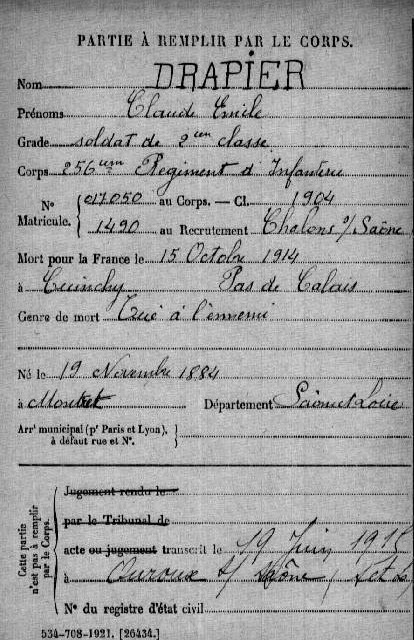 PARTIE À REMPLIR PAR LE CORPS.
Nom DRAPIER
Prénoms Claude Emile
Grade soldat de 2em classe
Corps 256em Regiment d'Infanterie
N° Matricule. { 017050 au Corps. — Cl. 1904
1490 au Recrutement Chalons s/Saône
Mort pour la France le 15 Octobre 1914
à Cuinchy Pas de Calais
Genre de mort Tué à l'ennemi
Né le 19 Novembre 1884
à Montret Département Saône et Loire
Arrt municipal (pr Paris et Lyon), à défaut rue et N°. }
Cette partie n'est pas à remplir par le Corps.
Jugement rendu le
par le Tribunal de
acte ou jugement transcrit le 19 Juin 1915
à Ouroux s/ Saône
N° du registre d'état civil
534-708-1921. [26434.]